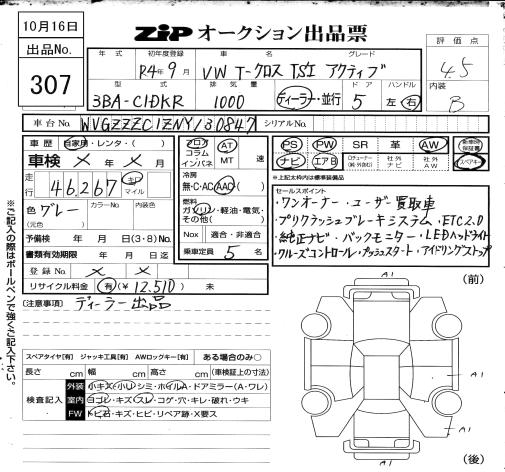 10月16日
出品No.
307
ZIP オークション出品票
年式 初年度登録 車名 グレード
R4年9月 VW T-クロス TSI アクティブ
型式 排気量 ドア ハンドル
3BA-C1DKR 1000 ディーラー・並行 5 左 右
評価点
4.5
内装
B
車台No. WVGZZZC1ZNY130847 シリアルNo.
車歴 自家用・レンタ・( )
車検 × 年 × 月
走行 46267 キロ マイル
色 グレー カラーNo. 内装色
(元色 )
予備検 年 月 日(3・8)No.
書類有効期限 年 月 日迄
登録No. × ×
リサイクル料金 (有)(¥12,510) 未
フロア コラム インパネ
AT MT 速
冷房
無・C・AC・AAC( )
燃料
ガソリン・軽油・電気・その他( )
Nox 適合・非適合
乗車定員 5 名
PS PW SR 革 AW 新車時保証書
ナビ エアB 社外ナビ 社外AW スペアキー
※上記太枠内は標準装備品
セールスポイント
・ワンオーナー・ユーザー買取車
・プリクラッシュブレーキシステム・ETC2.0
・純正ナビ・バックモニター・LEDヘッドライト
・クルーズコントロール・プッシュスタート・アイドリングストップ
(注意事項) ディーラー出品
※ご記入の際はボールペンで強くご記入下さい。
スペアタイヤ[有] ジャッキ工具[有] AWロックキー[有] ある場合のみ○
長さ cm 幅 cm 高さ cm (車検証上の寸法)
検査記入
外装 小キズ・小リ・シミ・ホイルA・ドアミラー(A・ワレ)
室内 ヨゴレ・キズ・スレ・コゲ・穴・キレ・破れ・ウキ
FW トビ石・キズ・ヒビ・リペア跡・X要ス
(前)
A1
A1
A1
A1
(後)